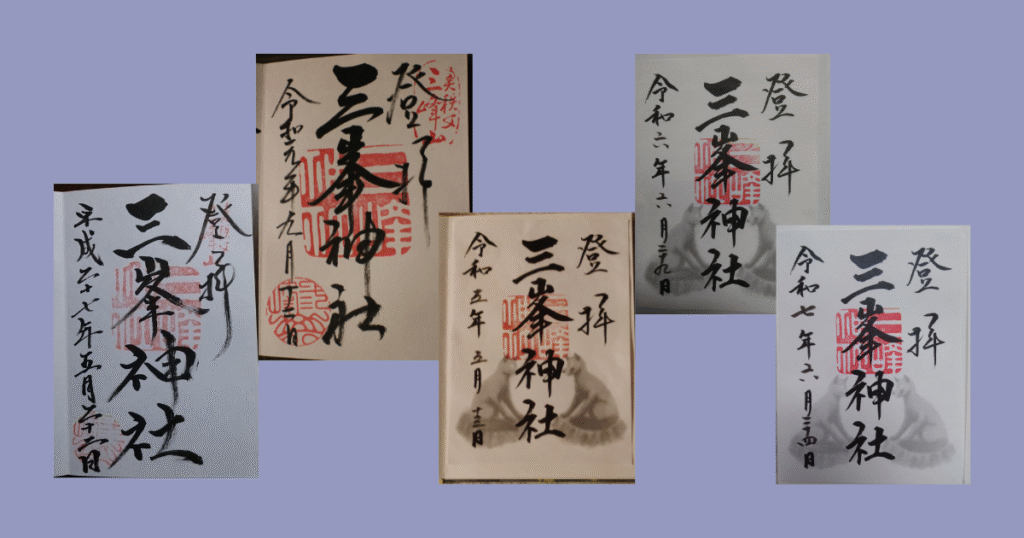 登拝
三峯神社
平成二十七年五月二十二日
奥秩父
三峰山
登拝
三峯神社
令和元年九月十二日
登拝
三峯神社
令和五年五月
登拝
三峯神社
令和六年六月二十九日
登拝
三峯神社
令和七年六月二十四日